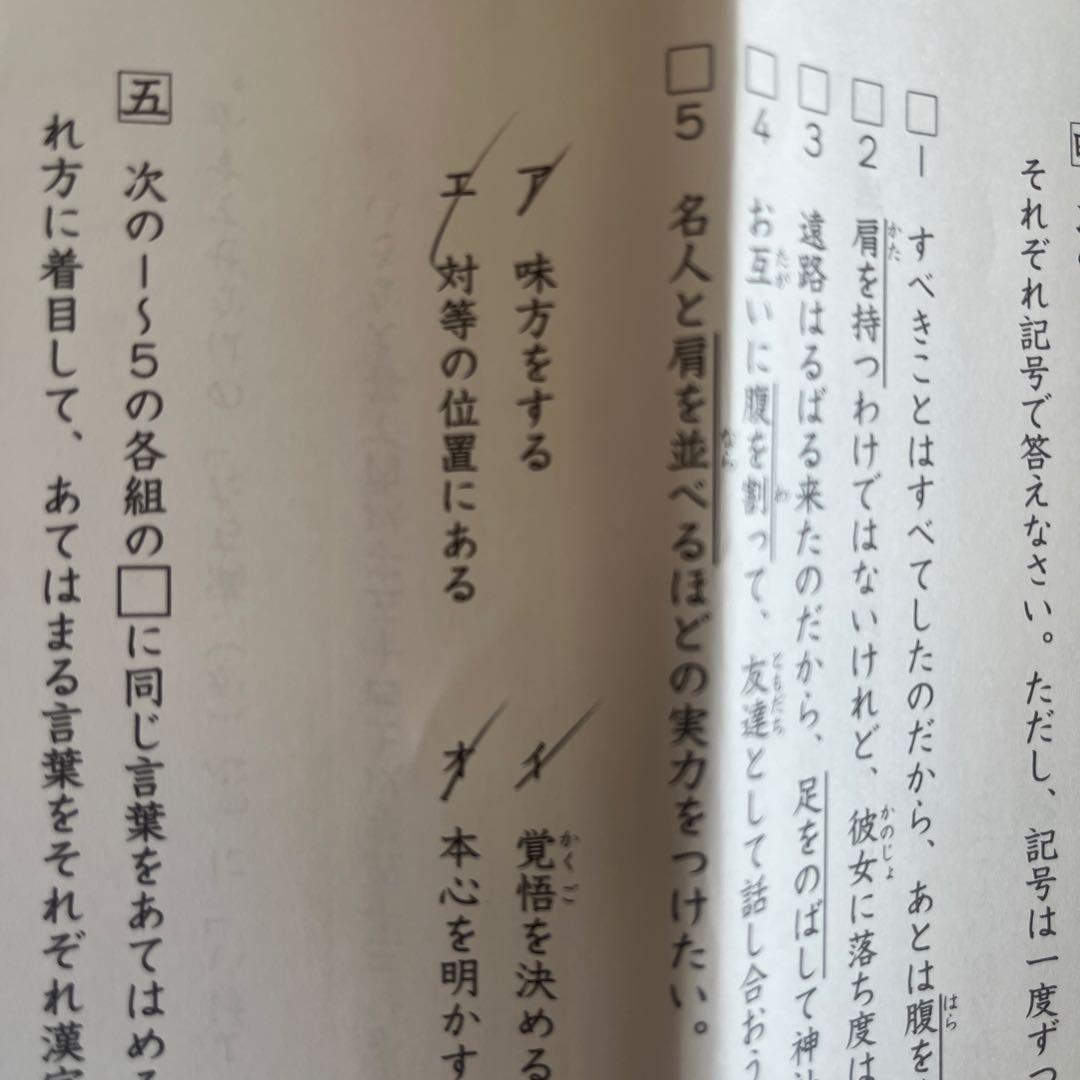 それぞれ記号で答えなさい。ただし、記号は一度ずつ
1 すべきことはすべてしたのだから、あとは腹を
はら
2 肩を持つわけではないけれど、彼女に落ち度は
かた
かのじょ
3 遠路はるばる来たのだから、足をのばして神社
4 お互いに腹を割って、友達として話し合おう
たが
わ
ともだち
5 名人と肩を並べるほどの実力をつけたい。
なら
ア 味方をする
イ 覚悟を決める
かくご
エ 対等の位置にある
オ 本心を明かす
五 次の1〜5の各組の□に同じ言葉をあてはめる
れ方に着目して、あてはまる言葉をそれぞれ漢字